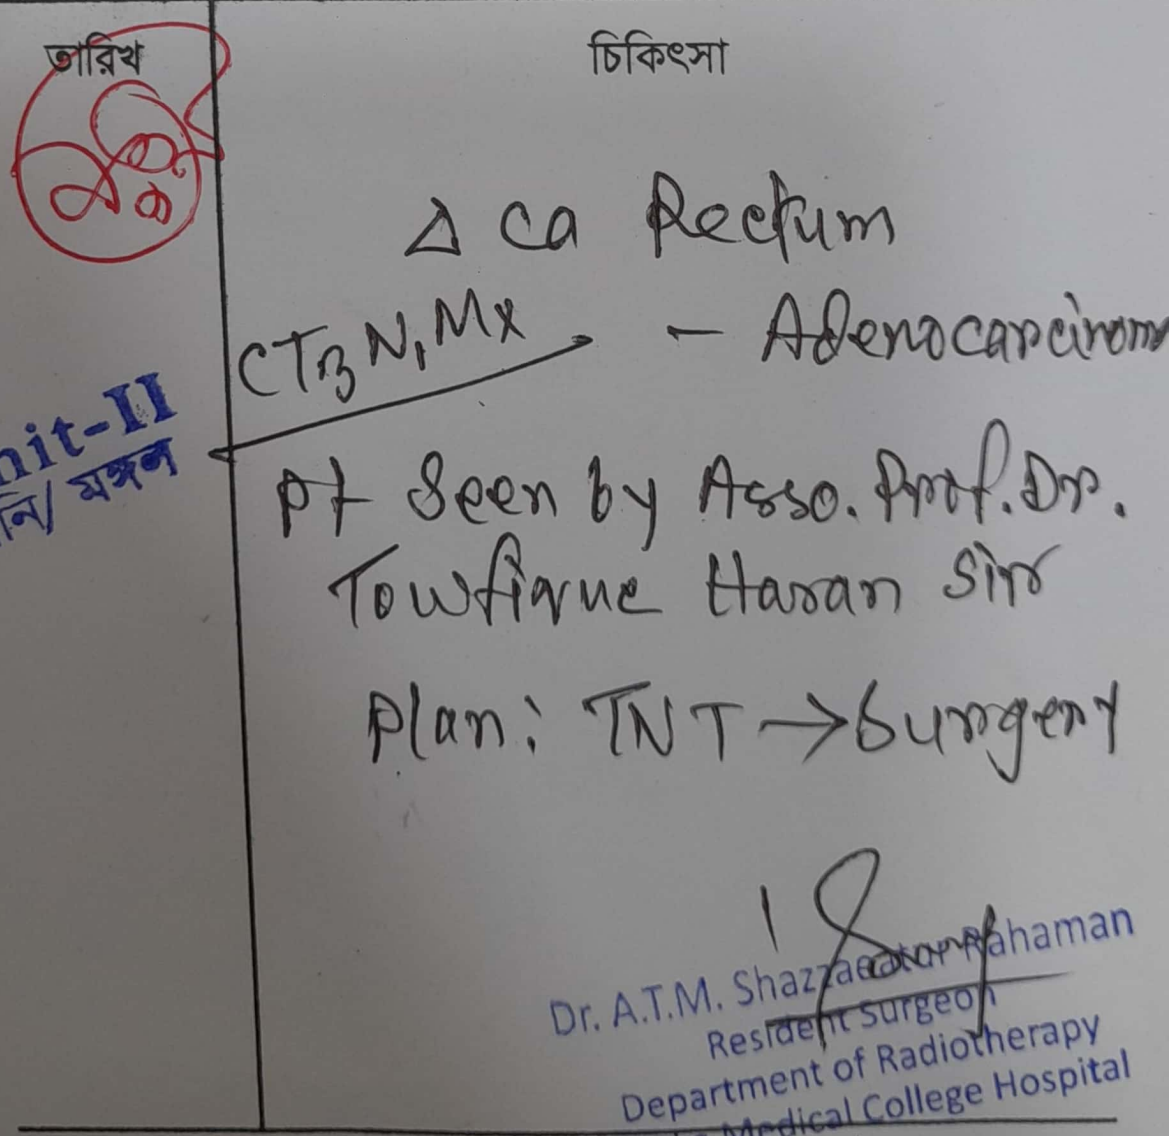 তারিখ
চিকিৎসা
Δ ca Rectum
CT3 N1 Mx
- Adenocarcinom
nit-II
নি/ মঙ্গল
Pt Seen by Asso. Prof. Dr.
Towfique Hasan Sir
Plan: TNT → Surgery
Dr. A.T.M. Rahaman
Resident Surgeon
Department of Radiotherapy
Medical College Hospital